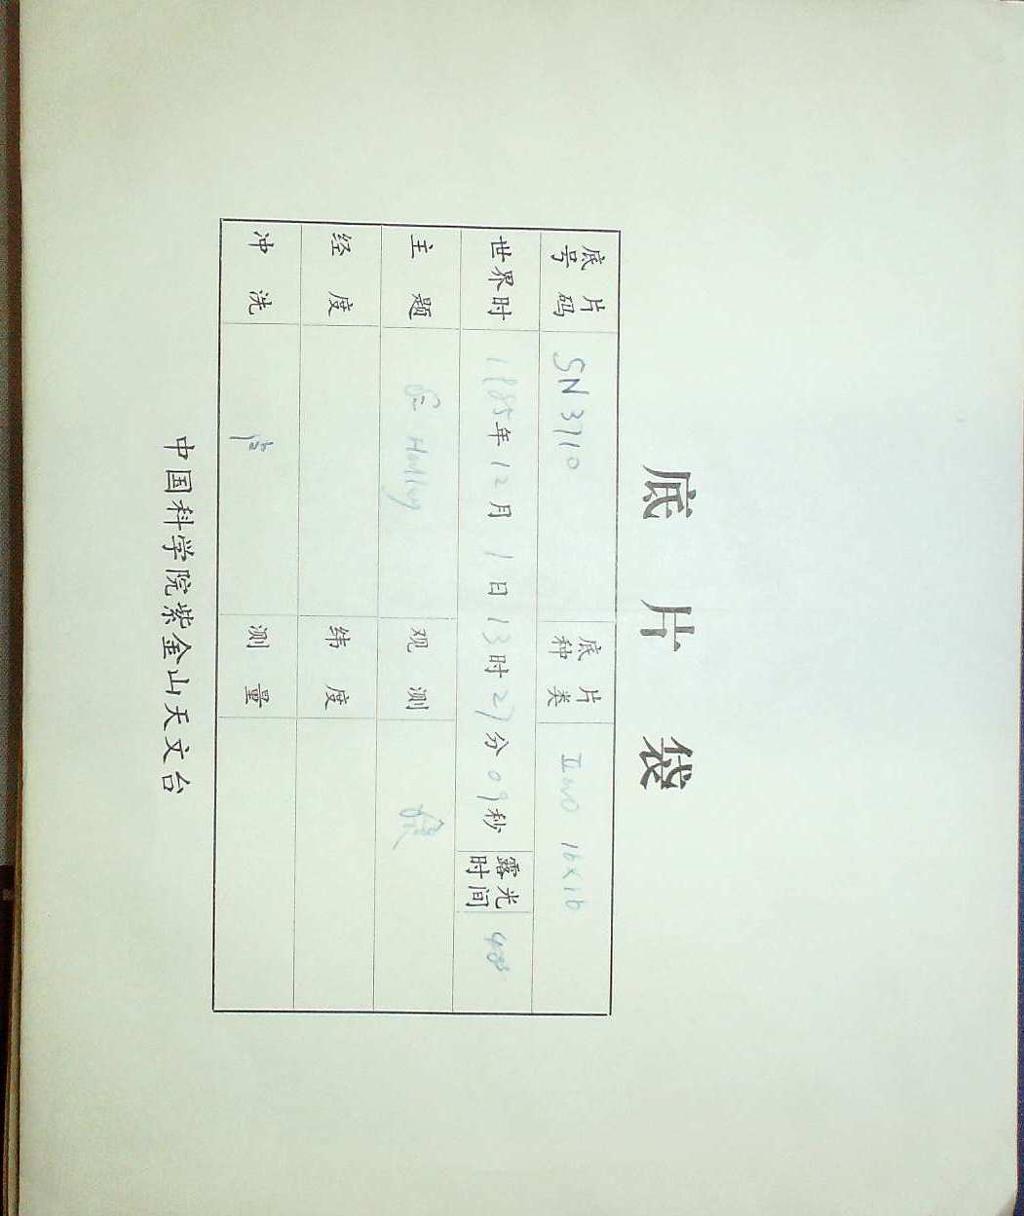 底 片 袋
底片号码 SN3710 底片种类 IIaO 16×16
世界时 1985年12月1日13时27分09秒 露光时间
主题 Halley 观测
经度 纬度
冲洗 测量
中国科学院紫金山天文台